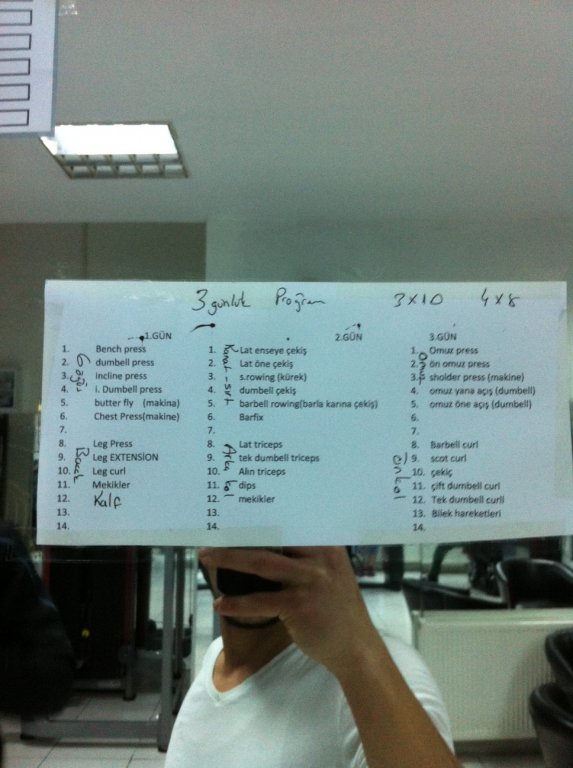 3 günlük Program 3x10 4x8
1.GÜN
1. Bench press
2. dumbell press
3. Incline press
4. i. Dumbell press
5. butter fly (makina)
6. Chest Press(makine)
7.
8. Leg Press
9. Leg EXTENSİON
10. Leg curl
11. Mekikler
12. Kalf
13.
14.
Göğüs
Bacak
2.GÜN
1. Lat enseye çekiş
2. Lat öne çekiş
3. s.rowing (kürek)
4. dumbell çekiş
5. barbell rowing(barla karına çekiş)
6. Barfix
7.
8. Lat triceps
9. tek dumbell triceps
10. Alın triceps
11. dips
12. mekikler
13.
14.
Kanat - sırt
Arka kol
3.GÜN
1. Omuz press
2. ön omuz press
3. sholder press (makine)
4. omuz yana açış (dumbell)
5. omuz öne açış (dumbell)
6.
7.
8. Barbell curl
9. scot curl
10. çekiç
11. çift dumbell curl
12. Tek dumbell curll
13. Bilek hareketleri
14.
Omuz
ön kol